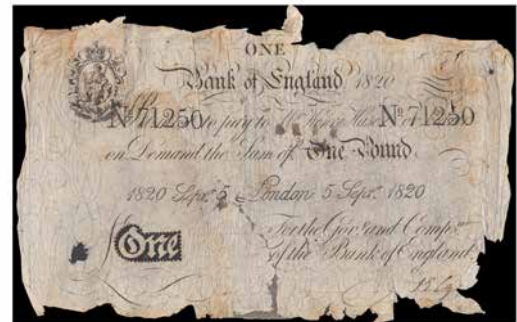 ONE
Bank of England 1820
Nº 71250 to pay to Mr Nº 71250
on Demand the Sum of One Pound
1820 Sepr. 5 London 5 Sepr. 1820
For the Govr. and Compa.
of the Bank of England
One